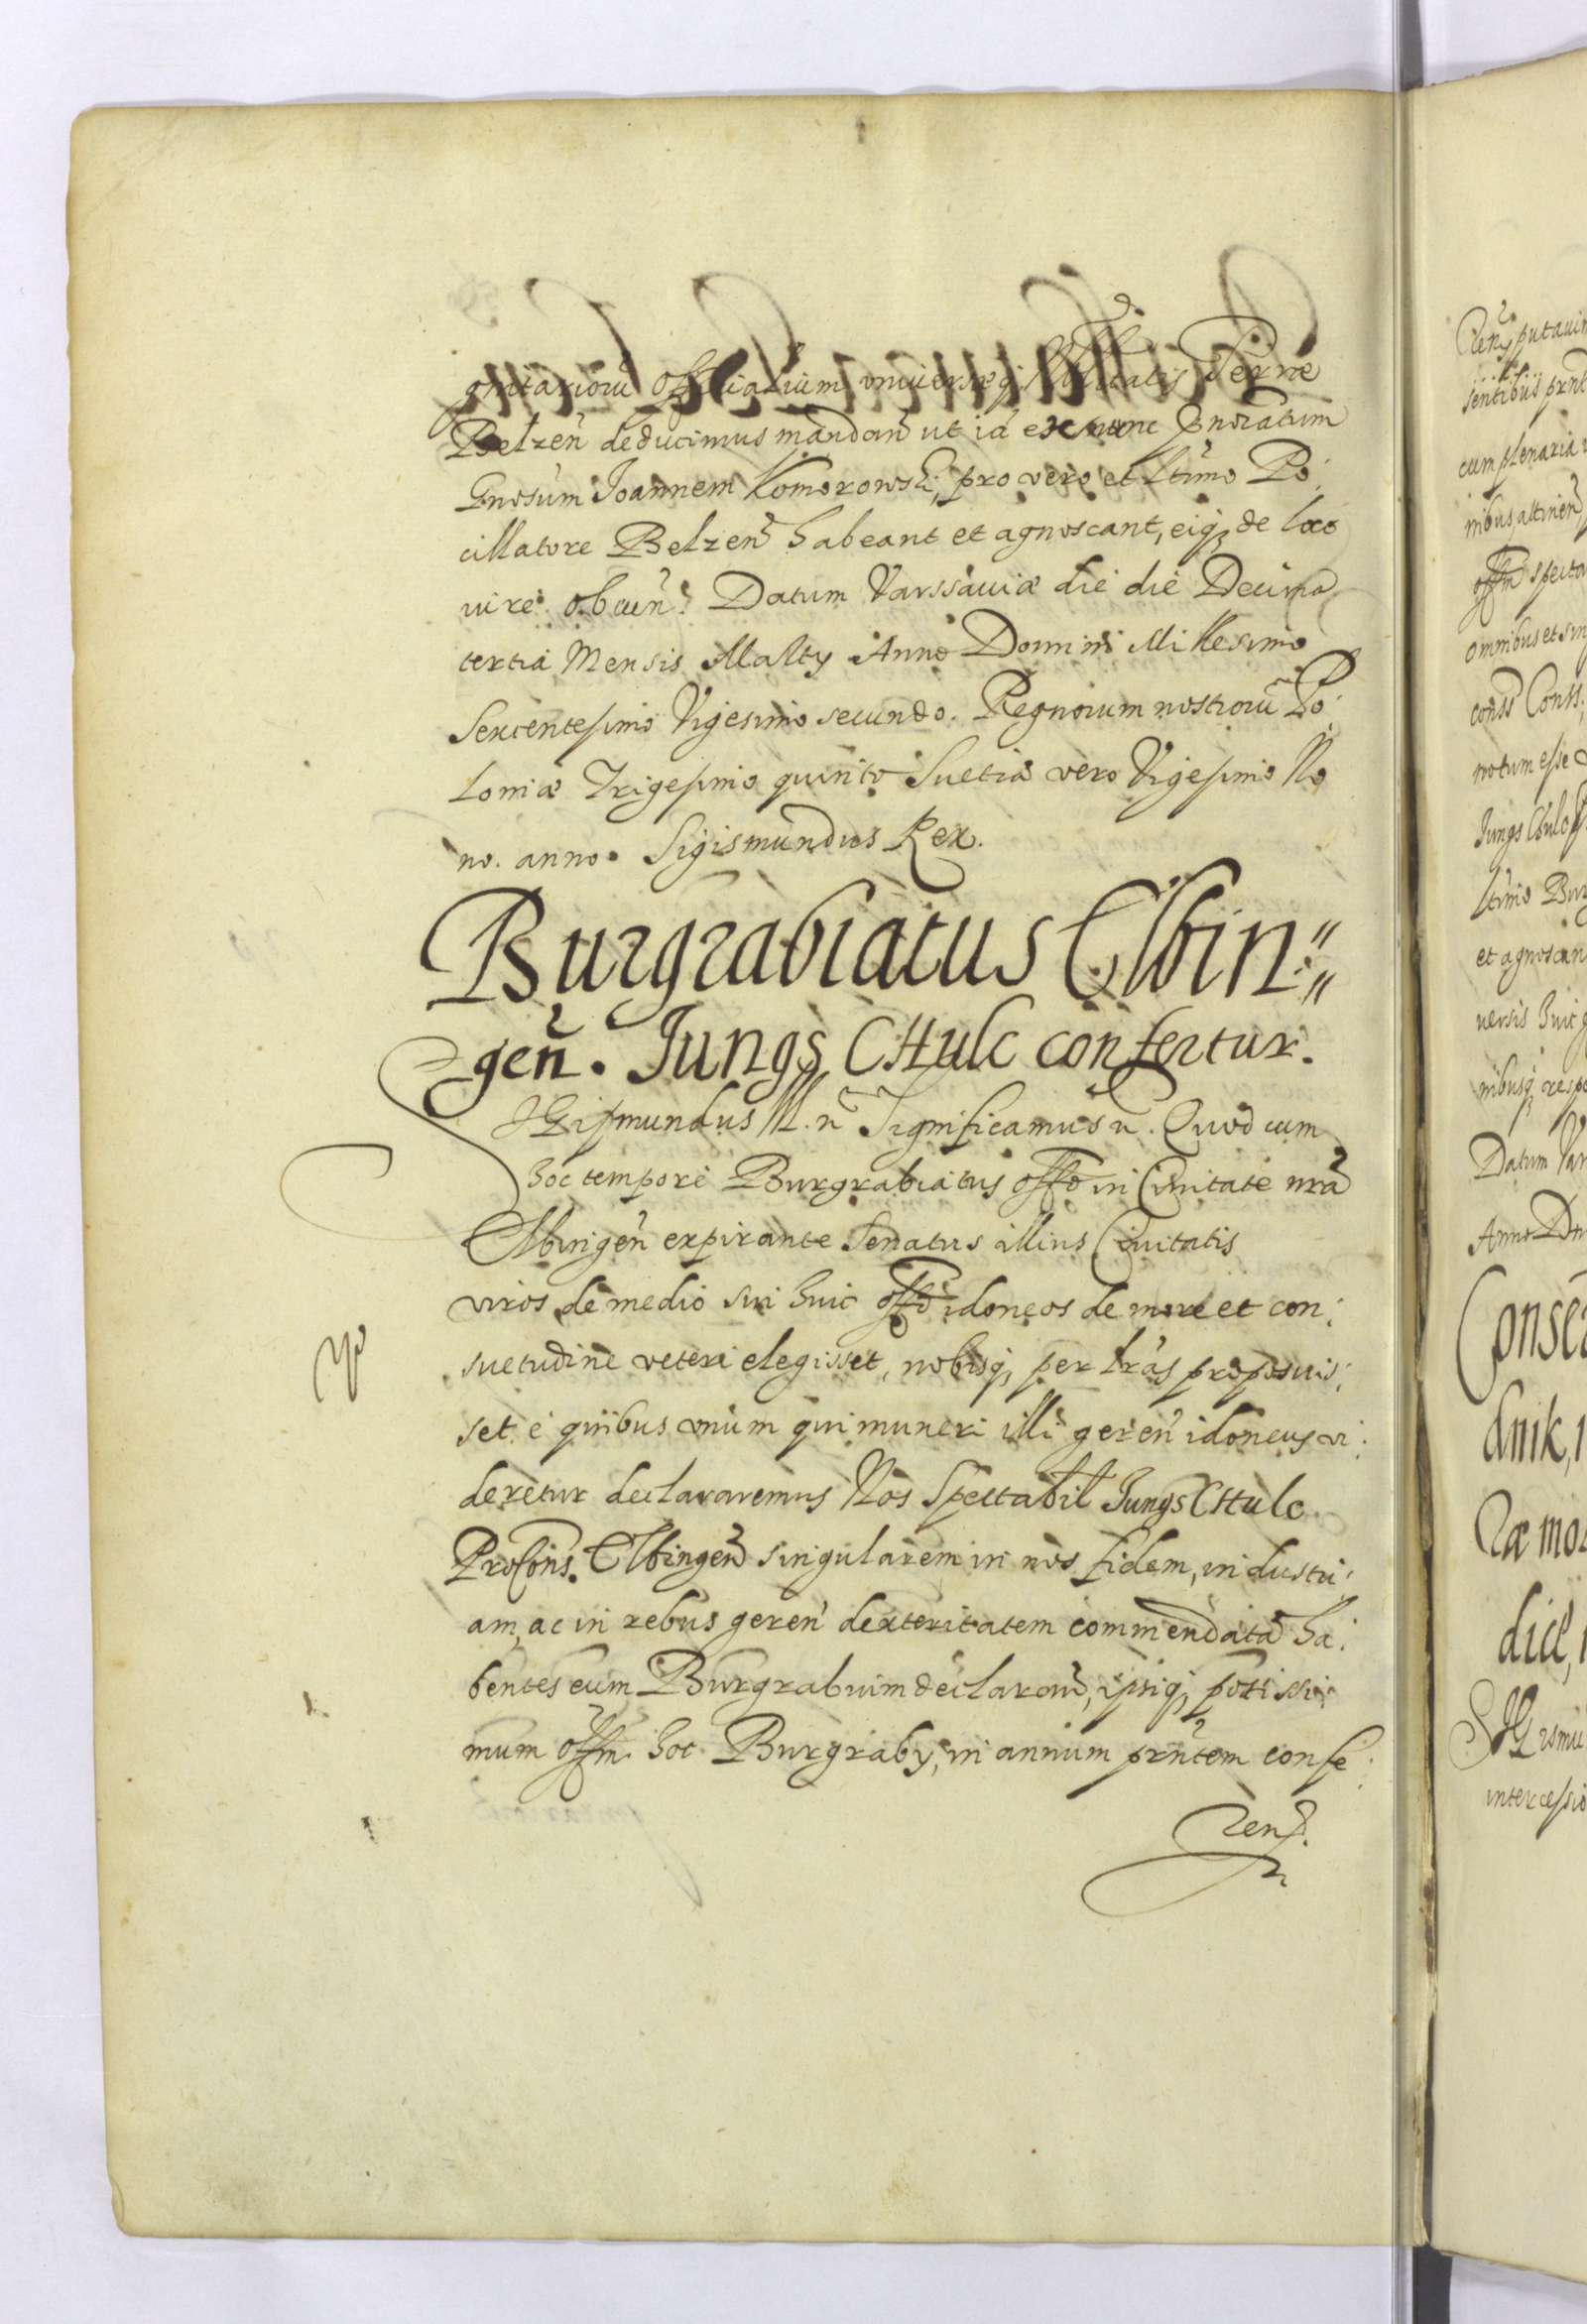 gnitarioru Officialium universaeq, Nobilitatis Terrae
Belzen deducimus mandan ut ia ex nunc pnoiatum
Gnosum Joannem Komorowski, pro vero et ltimo Po:
cillatore Belzen habeant et agnoscant, eiq, de loco
Datum Varssaviæ die die Decima
tertia Mensis Maiy Anno Domini Millesimo
Sexcentesimo Vigesimo secundo. Regnorum nostroru Po:
loniæ Trigesimo quinto Suetiæ vero Vigesimo No
no. anno. Sigismundus Rex.
Burgrabiatus Elbin:
gen. Jungs CHulc confertur.
SIGismundus III. n Significamus n. Quod cum
hoc tempore Burgrabiatus offo in Civitate nra
Elbingen expirante Senatus illius Civitatis
viros de medio sui huic offo idoneos de more et con:
suetudine veteri elegisset, nobisq, per lras proposuis:
set e quibus unum qui muneri illi geren idoneus vi:
deretur declararemus Nos Spectabil Jungs CHulc
ProCons. Elbingen singularem in nos fidem, industri:
am, ac in rebus geren dexteritatem commendata ha:
bentes eum Burgrabium declaran, ipsiq, potissi:
mum offm hoc Burgraby, in annum prntem confe:
ren
putavim
sentibus prnt
cum plenaria
nibus attinen
offm specta
omnibus et sin
notum esse
Jungs CHulc
ltimo Bur
et agnoscan
versis huic
nibusq, respe
Datum Var
Anno Dni
Conse
dnik,
dict,
SIGismu
intercessio